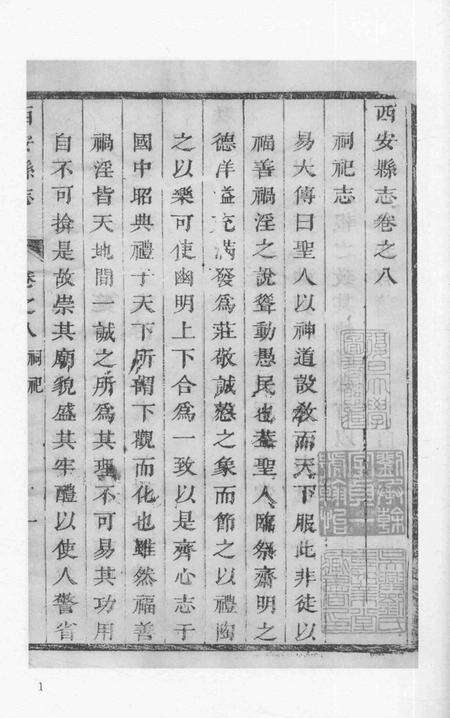 西安縣志卷之八
祠祀志
易大傳曰聖人以神道設教而天下服此非徒以
福善禍淫之說聳動愚民也蓋聖人臨祭齋明之
德洋溢充滿發爲莊敬誠慤之象而節之以禮陶
之以樂可使幽明上下合爲一致以是齊心志于
國中昭典禮于天下所謂下觀而化也雖然福善
禍淫皆天地間一誠之所爲其理不可易其功用
自不可揜是故崇其廟貌盛其牢醴以使人警省
西安縣志
卷之八 祠祀
一
1